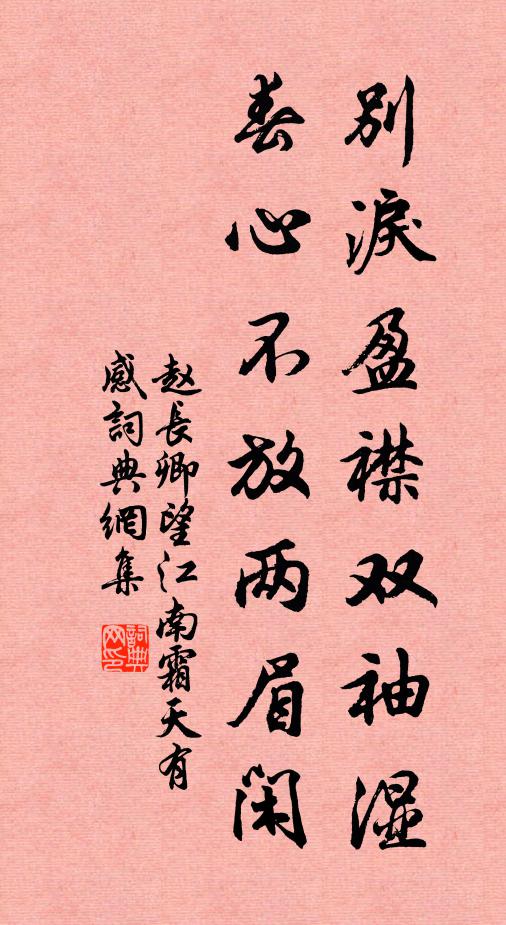 别淚盈襟双袖湿
春心不放两眉闲
赵長卿望江南霜天有
感詞典網集
詞典网印